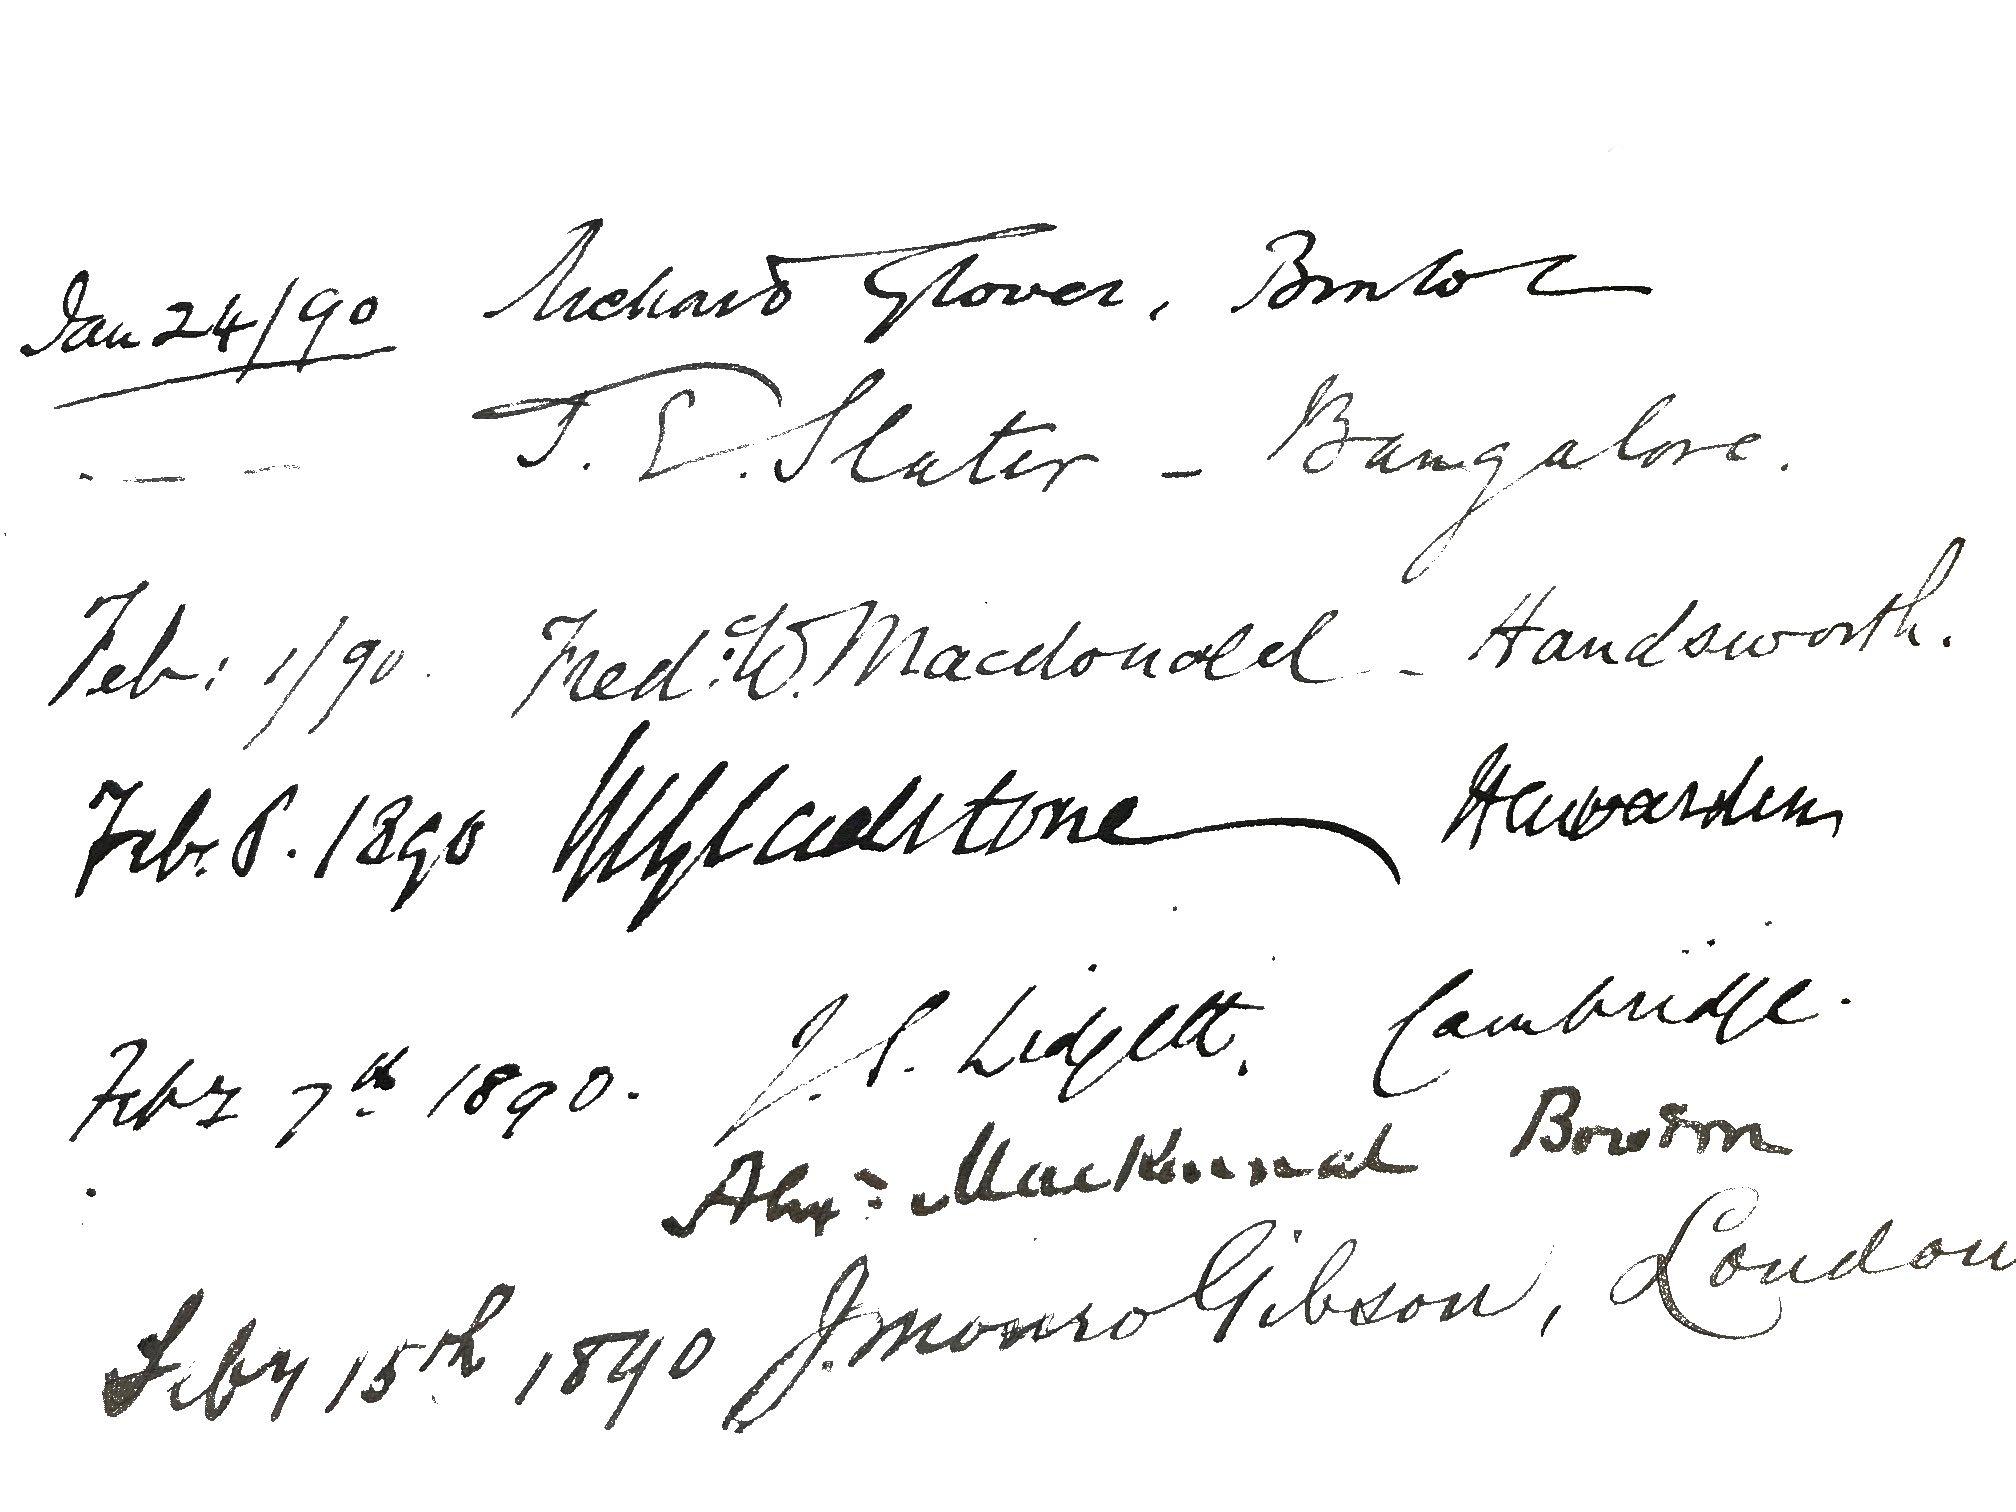 Jan 24/90 Richard Glover, Bristol
. — — T. E. Slater — Bangalore.
Feb: 1/90. Fredc. W. Macdonald — Handsworth.
Feb. 8. 1890 WEGladstone Hawarden
Feby 7th 1890. J. S. Lidgett. Cambridge.
Alexr Mackennal Bowdon
Feby 15th 1890 J. Monro Gibson, London